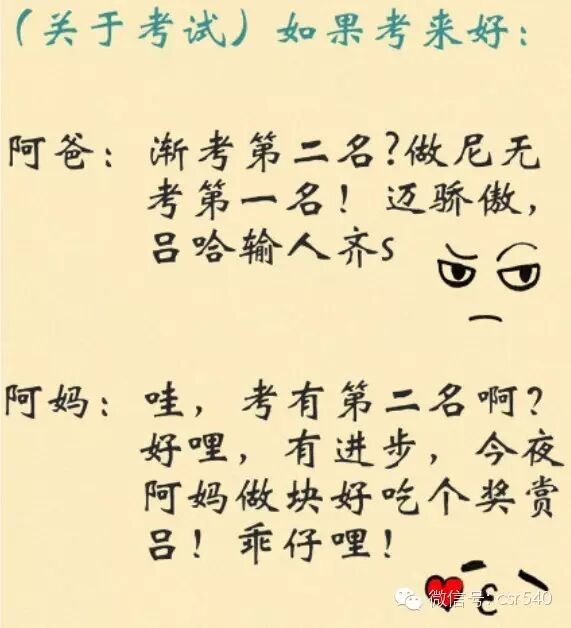 （关于考试）如果考来好：
阿爸：渐考第二名?做尼无
考第一名！迈骄傲，
吕哈输人齐s
阿妈：哇，考有第二名啊？
好哩，有进步，今夜
阿妈做块好吃个奖赏
吕！乖仔哩！
微信号：csr540